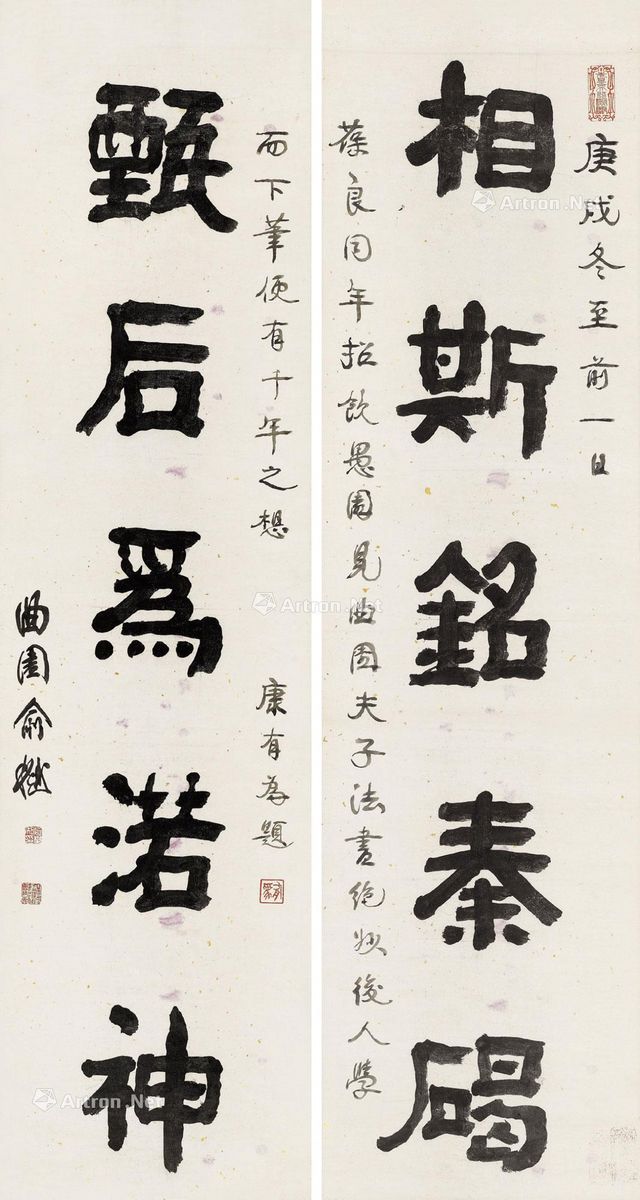 相斯銘秦碣
甄后爲渃神
庚戌冬至前一日
葆良同年招飲愚園見曲園夫子法書絶妙後人學
而下筆便有千年之想
康有為題
曲園俞樾
Artron.Net
Artron.Net
Artron.Net